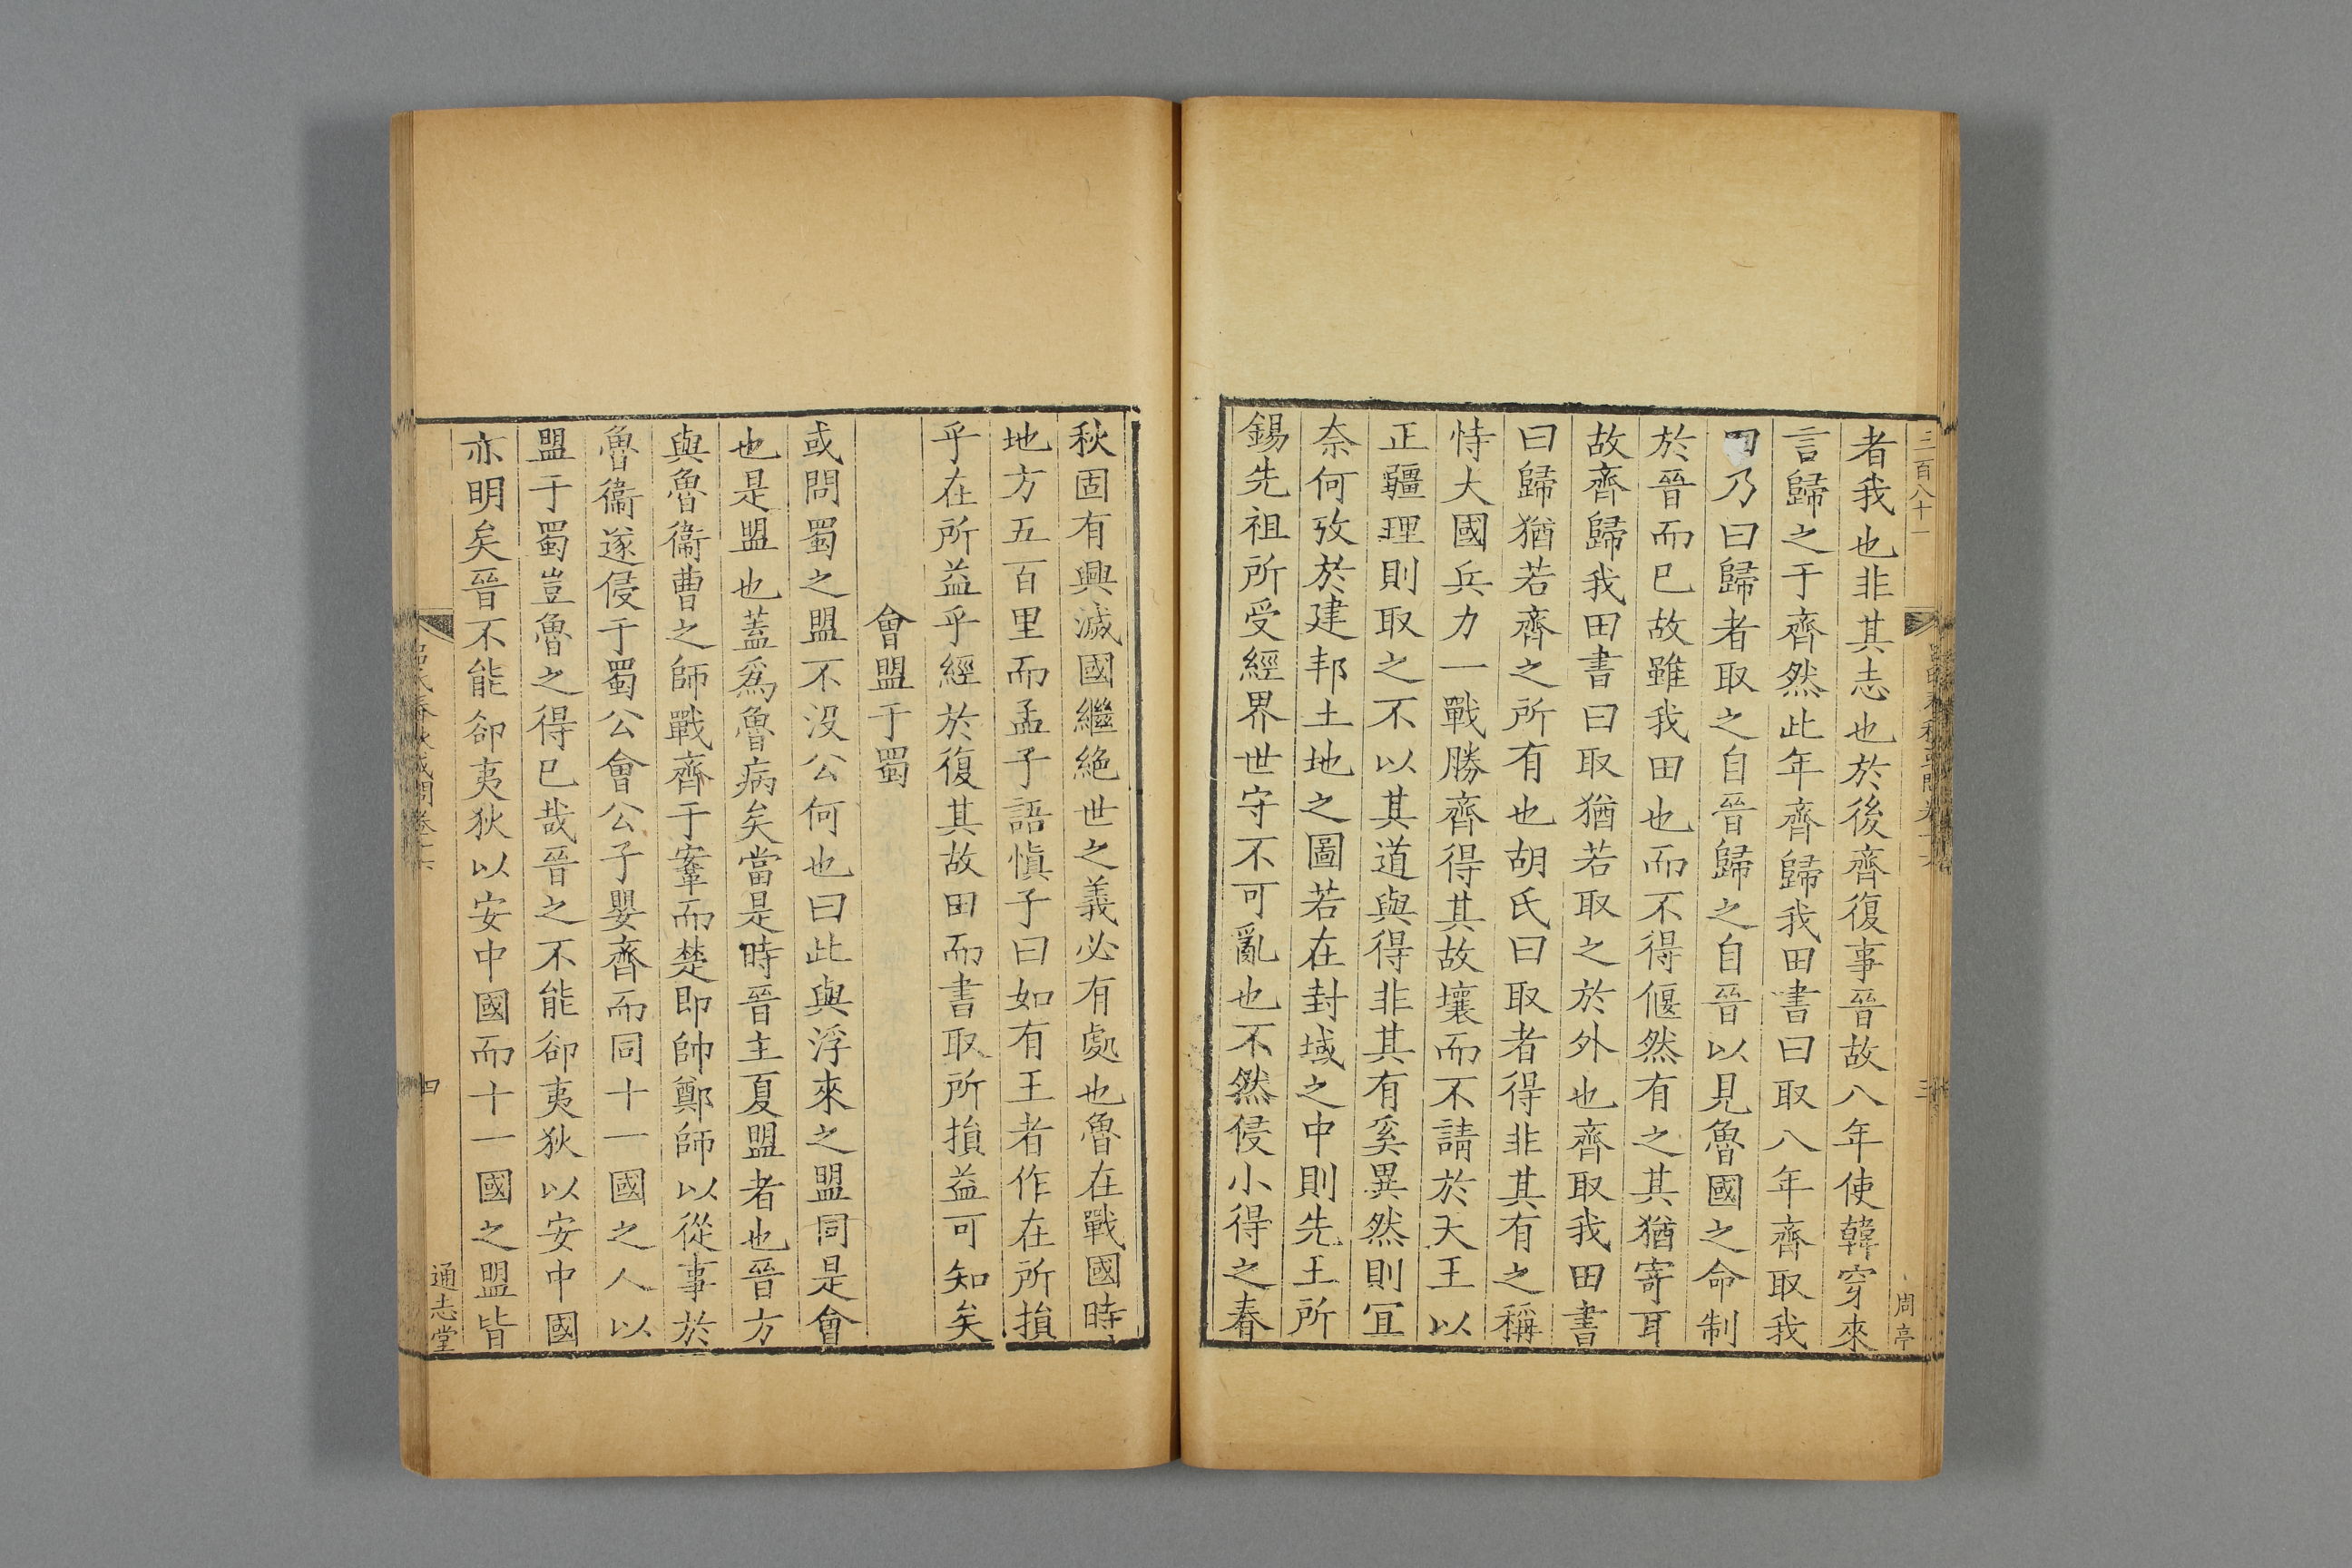 三百八十一
周亭
者我也非其志也於後齊復事晉故八年使韓穿來
言歸之于齊然此年齊歸我田書曰取八年齊取我
乃曰歸者取之自晉歸之自晉以見魯國之命制
於晉而已故雖我田也而不得偃然有之其猶寄耳
故齊歸我田書曰取猶若取之於外也齊取我田書
曰歸猶若齊之所有也胡氏曰取者得非其有之稱
恃大國兵力一戰勝齊得其故壤而不請於天王以
正疆理則取之不以其道與得非其有奚異然則冝
奈何攷於建邦土地之圖若在封域之中則先王所
錫先祖所受經界世守不可亂也不然侵小得之春
秋固有興滅國繼絶世之義必有處也魯在戰國時
地方五百里而孟子語愼子曰如有王者作在所損
乎在所益乎經於復其故田而書取所損益可知矣
會盟于蜀
或問蜀之盟不沒公何也曰此與浮來之盟同是會
也是盟也蓋爲魯病矣當是時晉主夏盟者也晉方
與魯衞曹之師戰齊于鞌而楚即帥鄭師以從事於
魯衞遂侵于蜀公會公子嬰齊而同十一國之人以
盟于蜀豈魯之得已哉晉之不能卻夷狄以安中國
亦明矣晉不能卻夷狄以安中國而十一國之盟皆
四
通志堂